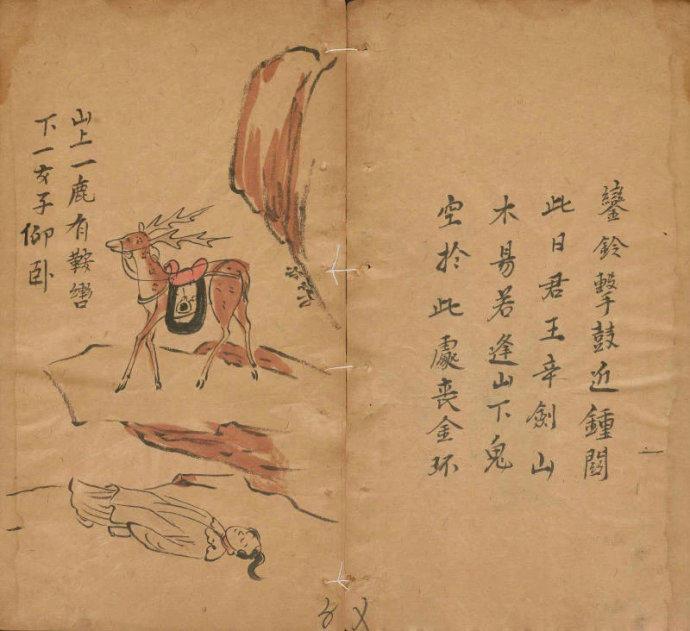 鑾鈴擊鼓近鍾關
此日君王幸劍山
木易若逢山下鬼
空於此處喪金环
山上一鹿有鞍轡
下一女子仰卧